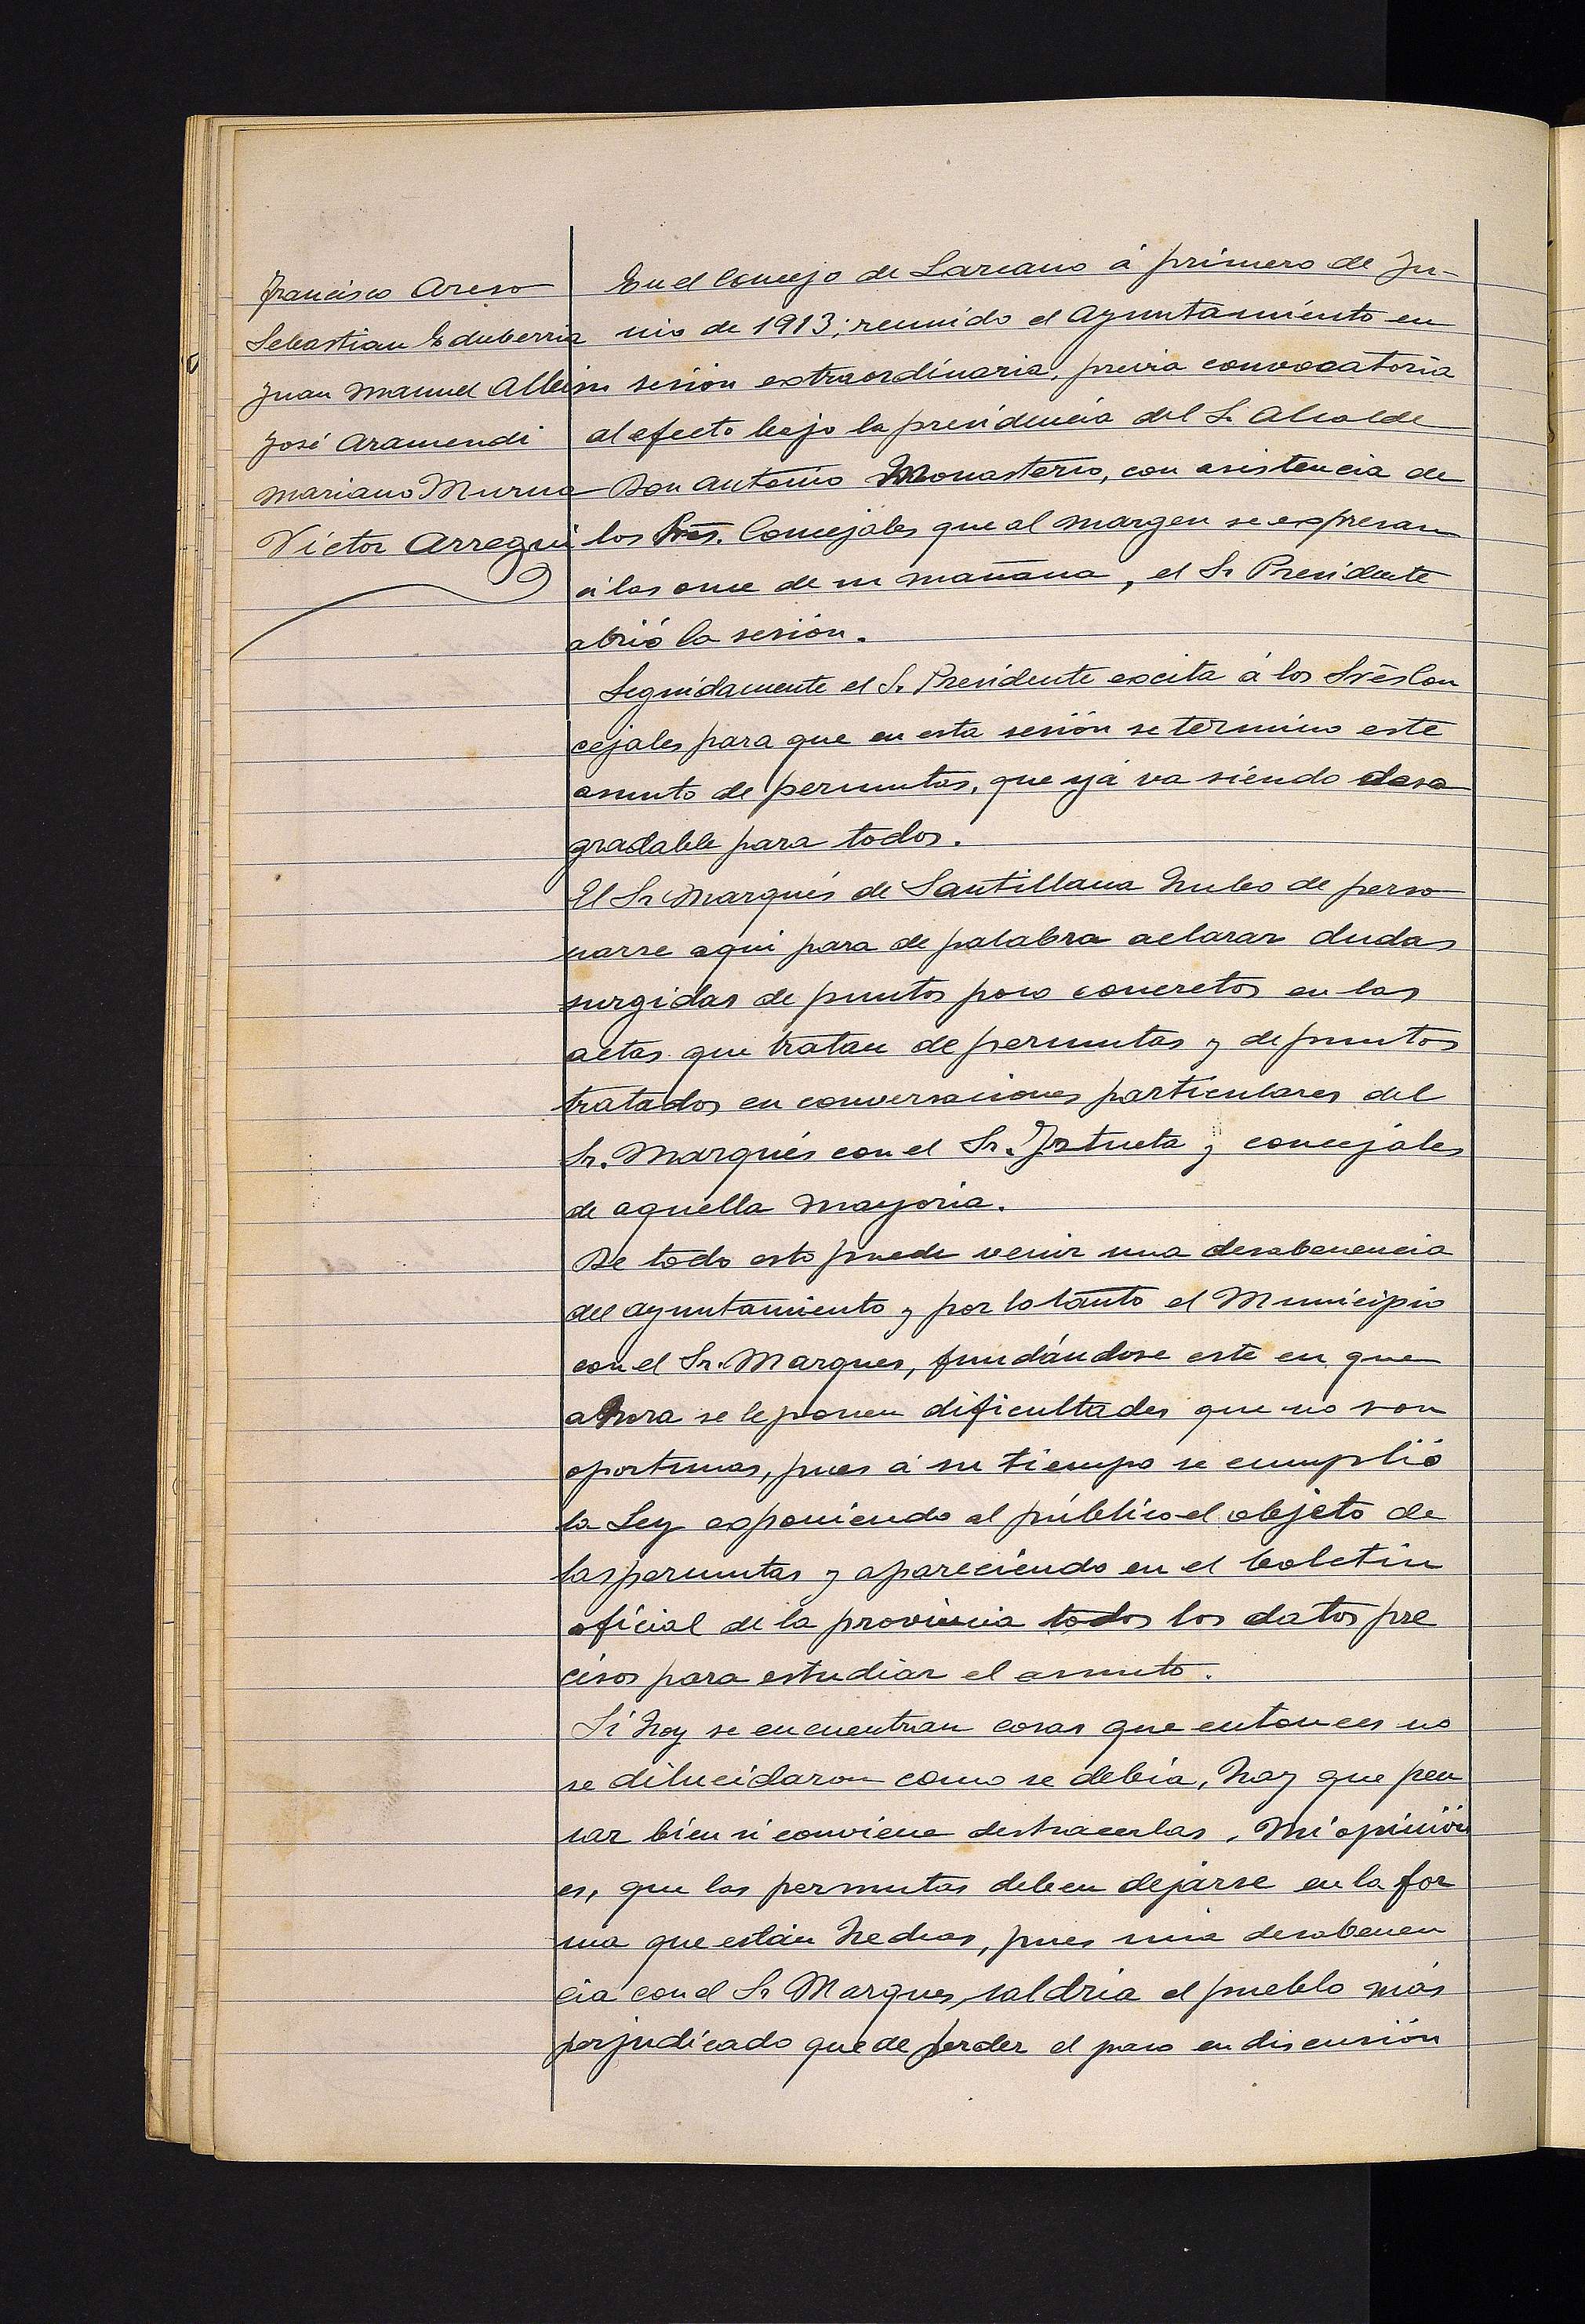 Francisco Areso
Sebastian Echeberria
Juan Manuel Albisu
José Aramendi
Mariano Murua
Victor Arregui
En el Concejo de Lazcano á primero de Ju-
nio de 1913; reunido el Ayuntamiento en
sesión extraordinaria, previa convocatoria
al efecto bajo la presidencia del Sr. Alcalde
Don Antonio Monasterio, con asistencia de
los Sres. Concejales que al margen se expresan
á las once de su mañana, el Sr Presidente
abrió la sesión.
Seguidamente el S. Presidente excita á los Sres Con
cejales para que en esta sesión se termine este
asunto de permutas, que yá va siendo desa
gradable para todos.
El Sr Marqués de Santillana hubo de perso
narse aqui para de palabra aclarar dudas
surgidas de puntos poco concretos en las
actas que tratan de permutas y de puntos
tratados en conversaciones particulares del
Sr. Marqués con el Sr. Iztueta y concejales
de aquella mayoria.
De todo esto puede venir una desabenencia
del ayuntamiento y por lo tanto el Municipio
con el Sr. Marques, fundándose este en que
ahora se le ponen dificultades que no son
oportunas, pues á su tiempo se cumplió
la Ley exponiendo al público el objeto de
las permutas y apareciendo en el boletin
oficial de la provincia todos los datos pre
cisos para estudiar el asunto.
Si hoy se encuentran cosas que entonces no
se dilucidaron como se debia, hay que pen
sar bien si conviene deshacerlas. Mi opinión
es, que las permutas deben dejarse en la for
ma que están hechas, pues una desabenen
cia con el Sr Marques, saldria el pueblo más
perjudicado que de perder el paso en discusión